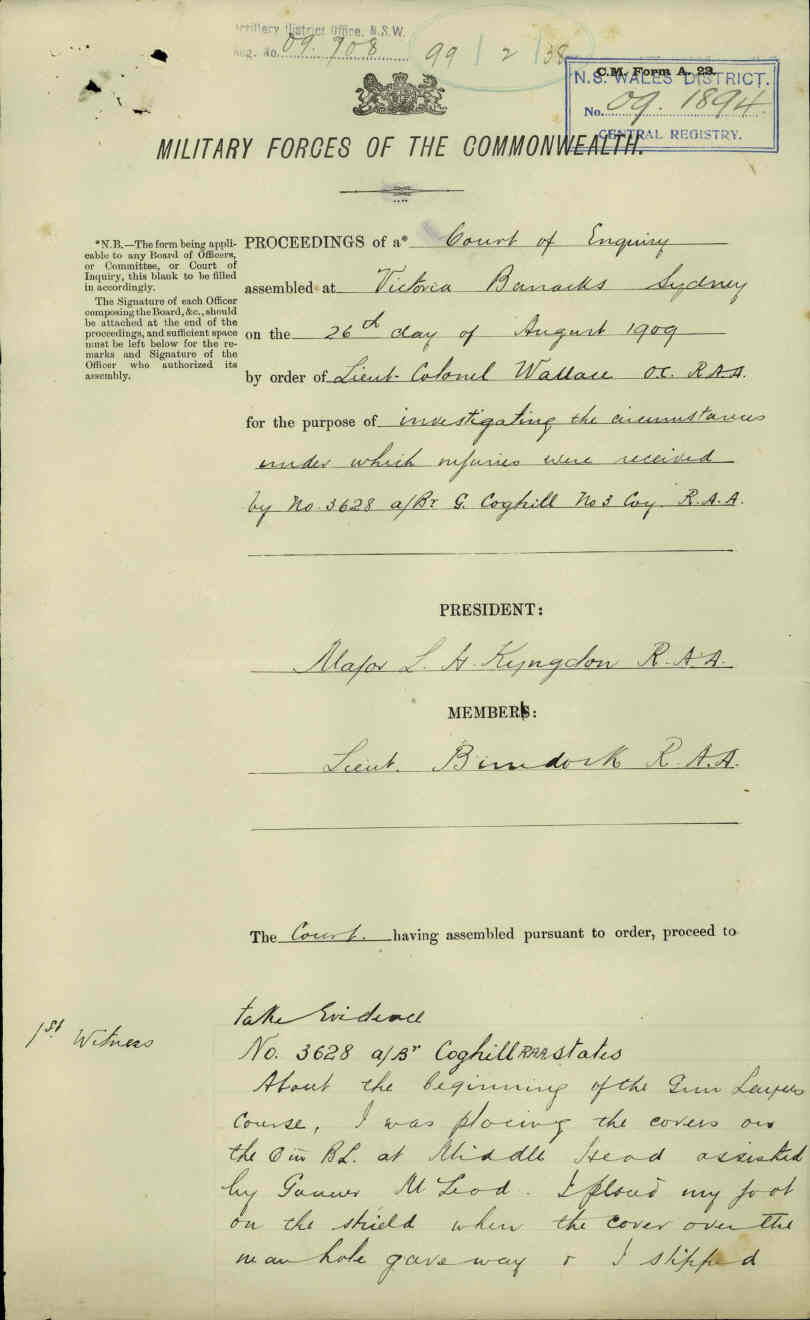 Artillery District Office, N.S.W.
Reg. No. 09.908 99 | 2 | 38
C.M. Form A. 23.
N.S. WALES DISTRICT.
No. 09.1894
CENTRAL REGISTRY.
MILITARY FORCES OF THE COMMONWEALTH.
*N.B.—The form being appli-
cable to any Board of Officers,
or Committee, or Court of
Inquiry, this blank to be filled
in accordingly.
The Signature of each Officer
composing the Board, &c., should
be attached at the end of the
proceedings, and sufficient space
must be left below for the re-
marks and Signature of the
Officer who authorized its
assembly.
PROCEEDINGS of a* Court of Enquiry
assembled at Victoria Barracks Sydney
on the 26th day of August 1909
by order of Lieut-Colonel Wallace O.C. R.A.A.
for the purpose of investigating the circumstances
under which injuries were received
by No. 3628 a/Br G. Coghill No 3 Coy. R.A.A.
PRESIDENT:
Major L. H. Kyngdon R.A.A.
MEMBER:
Lieut. R.A.A.
The Court. having assembled pursuant to order, proceed to
take Evidence
1st. Witness
No. 3628 a/Br Coghill RAA states
About the beginning of the Gun Layers
Course, I was placing the covers on
the 6 in BL. at Middle Head assisted
by Gunner McLeod. I placed my foot
on the shield when the cover over the
man hole gave way & I slipped